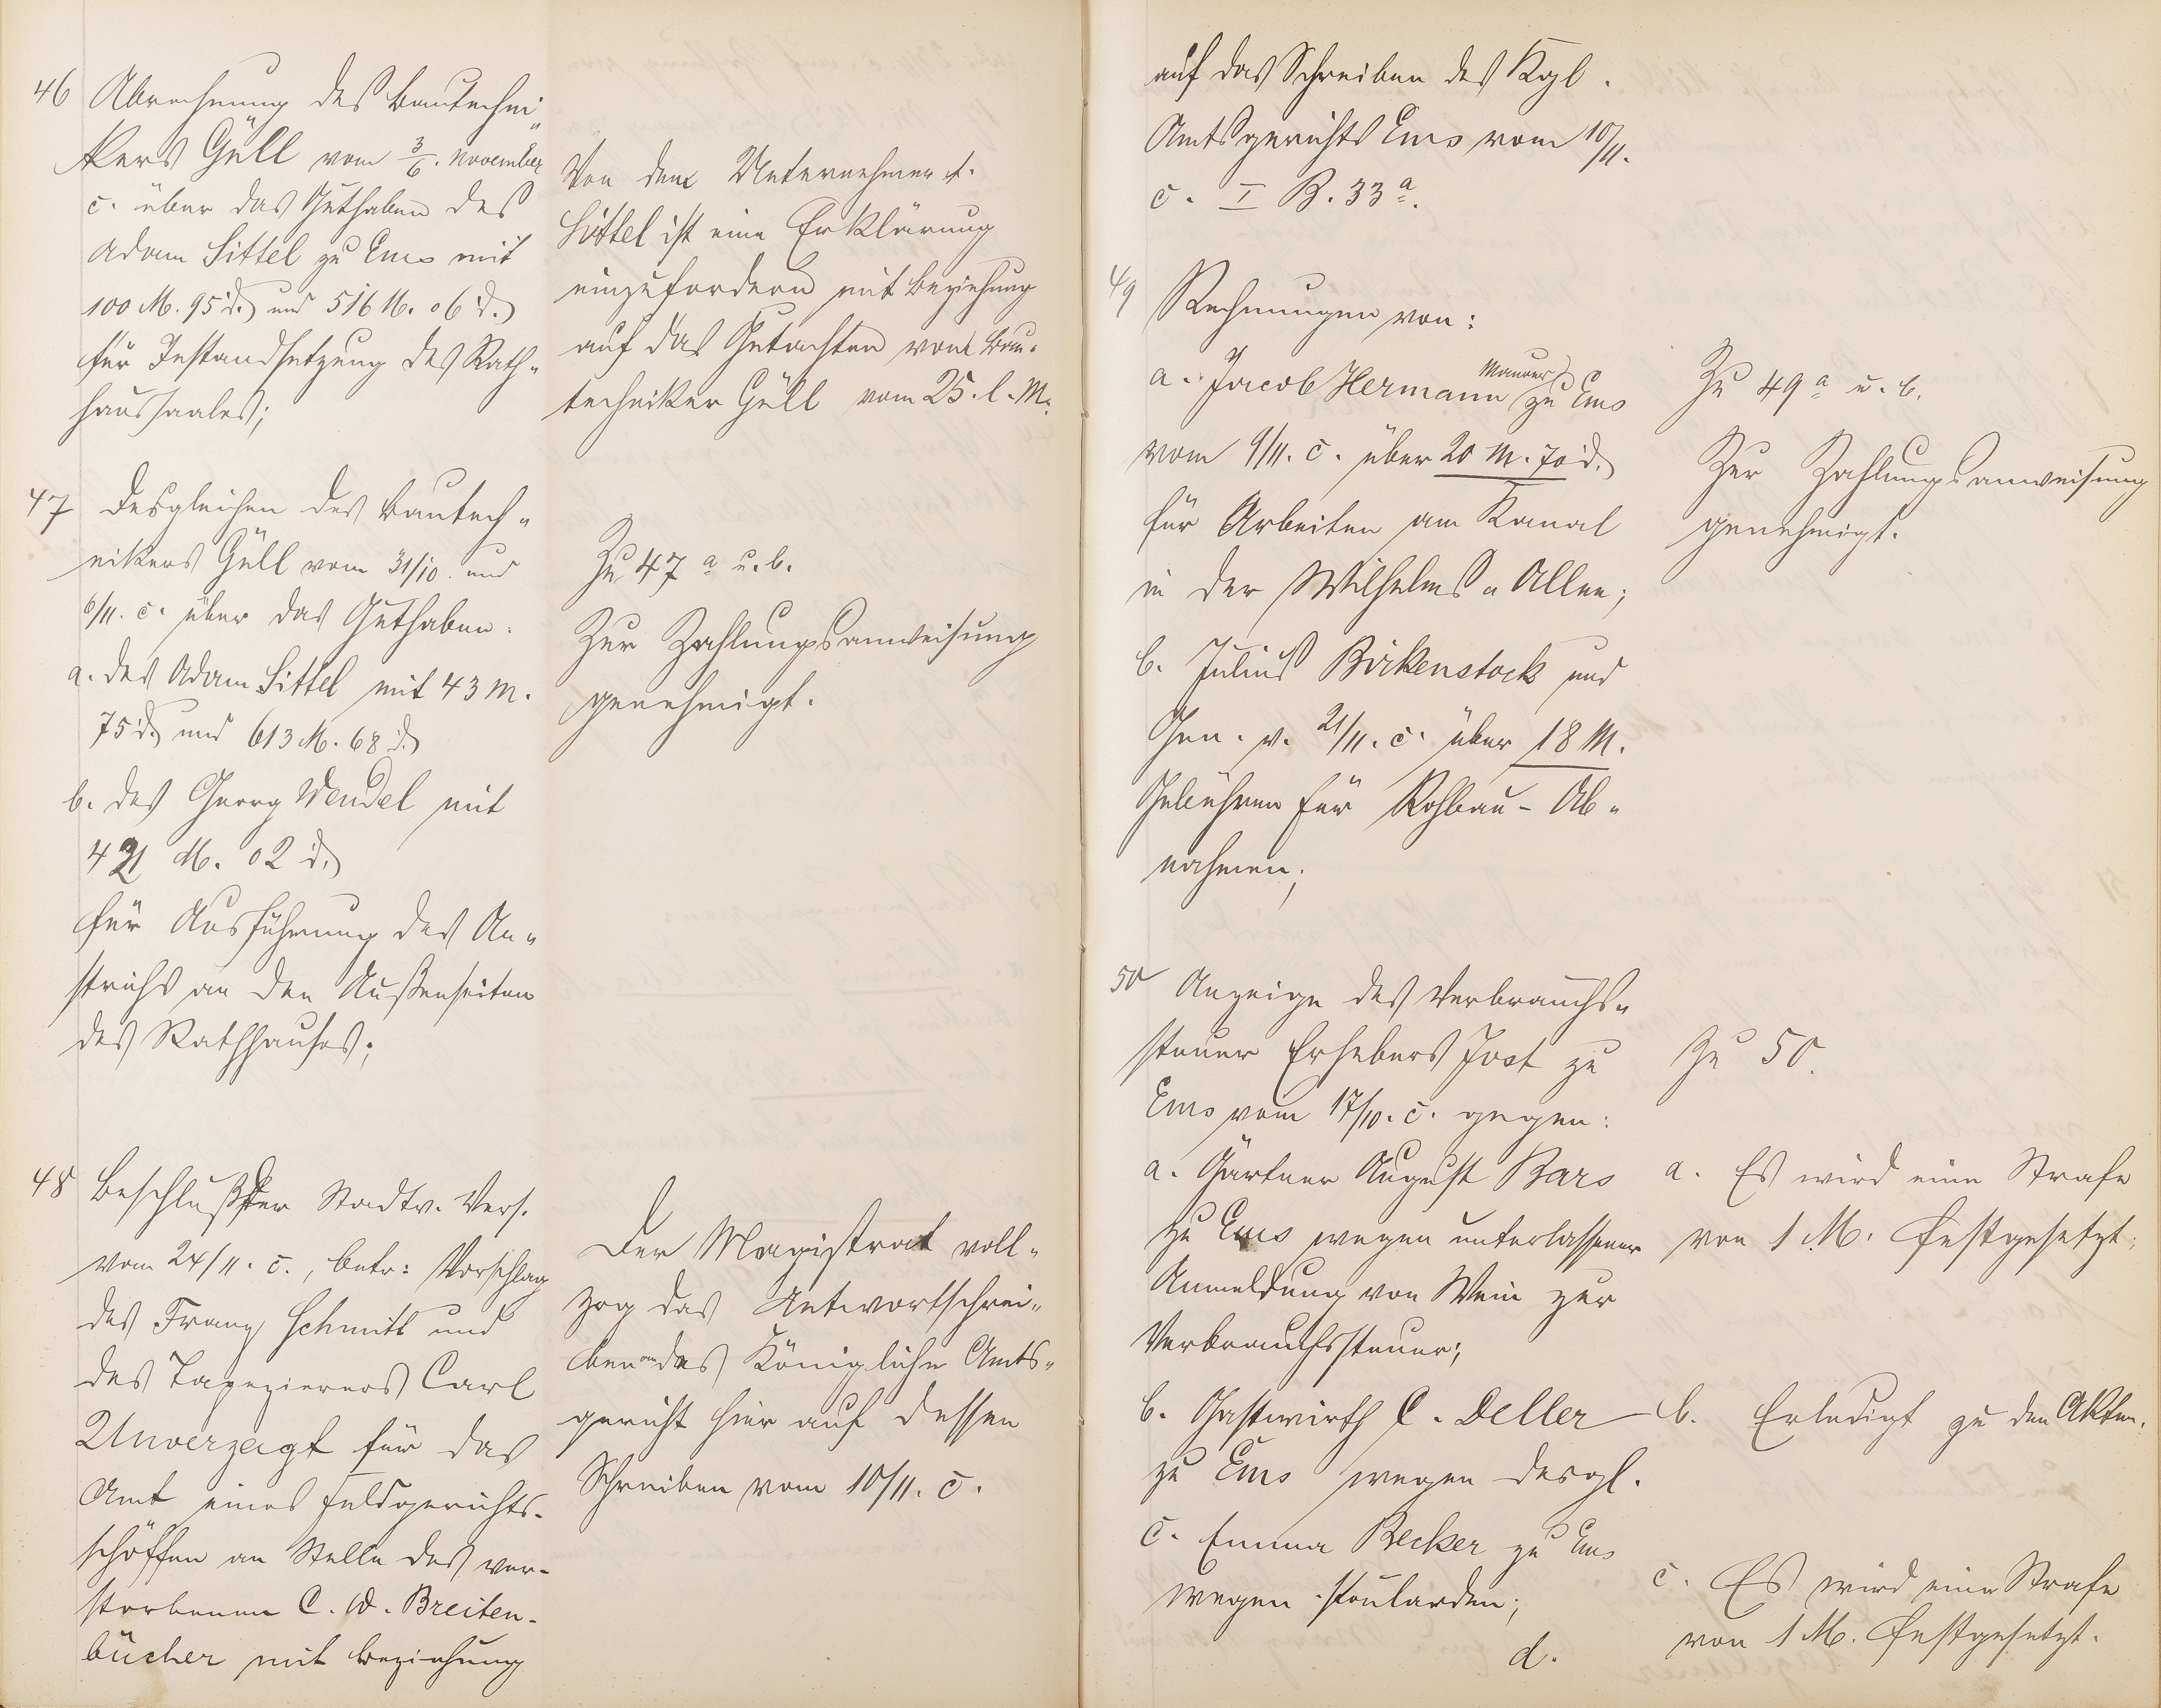 46 Abrechnung des Bautechni„
kers Güll vom 3/6. November
c. über das Guthaben des
Adam Sittel zu Ems mit
100 M. 95 d. und 516 M. 06 d.
für Instandsetzung des Rath„
haussaales;
Von dem Unternehmer A.
Sittel ist eine Erklärung
einzufordern mit Beziehung
auf das Gutachten vom Bau„
techniker Güll vom 25. l. M.
47 Desgleichen des Bautech„
nikers Güll vom 31/10. und
6/11. c. über das Guthaben:
a. des Adam Sittel mit 43 M.
75 d. und 613 M. 68 d.
b. des Georg Wendel mit
421 M. 02 d.
für Ausführung des An„
strichs an den Außenseiten
des Rathhauses;
Zu 47 a u. b.
Zur Zahlungsanweisung
genehmigt.
48 Beschluß der Stadtv. Vers.
vom 24/11. c., betr: Vorschlag
des Franz Schmitt und
des Tapezierers Carl
Unverzagt für das
Amt eines Feldgerichts-
schöffen an Stelle des ver-
storbenen C. W. Breiten-
bücher mit Beziehung
Der Magistrat voll„
zog das Antwortschrei„
ben an das Königliche Amts„
gericht hier auf dessen
Schreiben vom 10/11. c.
auf das Schreiben des Kgl.
Amtsgerichts Ems vom 10/11.
c. I B. 33 a.
49 Rechnungen von:
a. Jacob Hermann Maurer zu Ems
vom 9/11. c. über 20 M. 70 d.
für Arbeiten am Kanal
in der Wilhelms„Allee;
b. Julius Birkenstock und
Gen. v. 21/11. c. über 18 M.
Gebühren für Rohbau-Ab„
nahmen;
Zu 49 a u. b.
Zur Zahlungsanweisung
genehmigt.
50 Anzeige des Verbrauchs„
steuer Erhebers Jost zu
Ems vom 17/10. c. gegen:
a. Gärtner August Bars
zu Ems wegen unterlassener
Anmeldung von Wein zur
Verbrauchssteuer;
b. Gastwirth C. Deller
zu Ems wegen desgl.
c. Emma Becker zu Ems
wegen Poularden;
d.
Zu 50.
a. Es wird eine Strafe
von 1 M. festgesetzt;
b. Erledigt zu den Akten.
c. Es wird eine Strafe
von 1 M. festgesetzt.